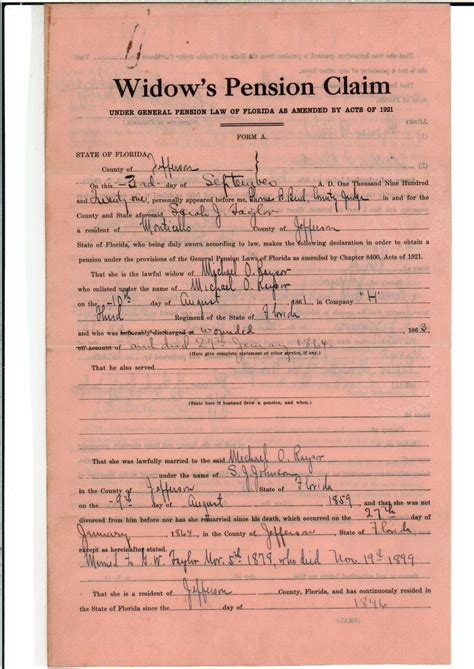 Widow's Pension Claim
UNDER GENERAL PENSION LAW OF FLORIDA AS AMENDED BY ACTS OF 1921
FORM A.
STATE OF FLORIDA,
County of Jefferson
On this -3rd- day of September A. D. One Thousand Nine Hundred
and Twenty one, personally appeared before me, B. Bird, County Judge in and for the
County and State aforesaid Sarah J. Taylor
a resident of Monticello County of Jefferson
State of Florida, who being duly sworn according to law, makes the following declaration in order to obtain a
pension under the provisions of the General Pension Laws of Florida as amended by Chapter 8400, Acts of 1921.
That she is the lawful widow of Michael O. Keysor
who enlisted under the name of Michael O. Keysor
on the -10th day of August 1861, in Company "H"
Third Regiment of the State of Florida
and who was honorably discharged at wounded 1863
on account of and died 29th January 1864
(Here give complete statement of other service, if any.)
That he also served
(State here if husband drew a pension, and when.)
That she was lawfully married to the said Michael O. Keysor
under the name of S. J. Johnson
in the County of Jefferson State of Florida
on the -9th day of August 1859, and that she was not
divorced from him before nor has she remarried since his death, which occurred on the 27th day of
January, 1864, in the County of Jefferson, State of Florida
except as hereinafter stated.
Married to B. W. Taylor Nov. 5th 1878, who died Nov. 19th 1899
That she is a resident of Jefferson County, Florida, and has continuously resided in
the State of Florida since the day of 1846